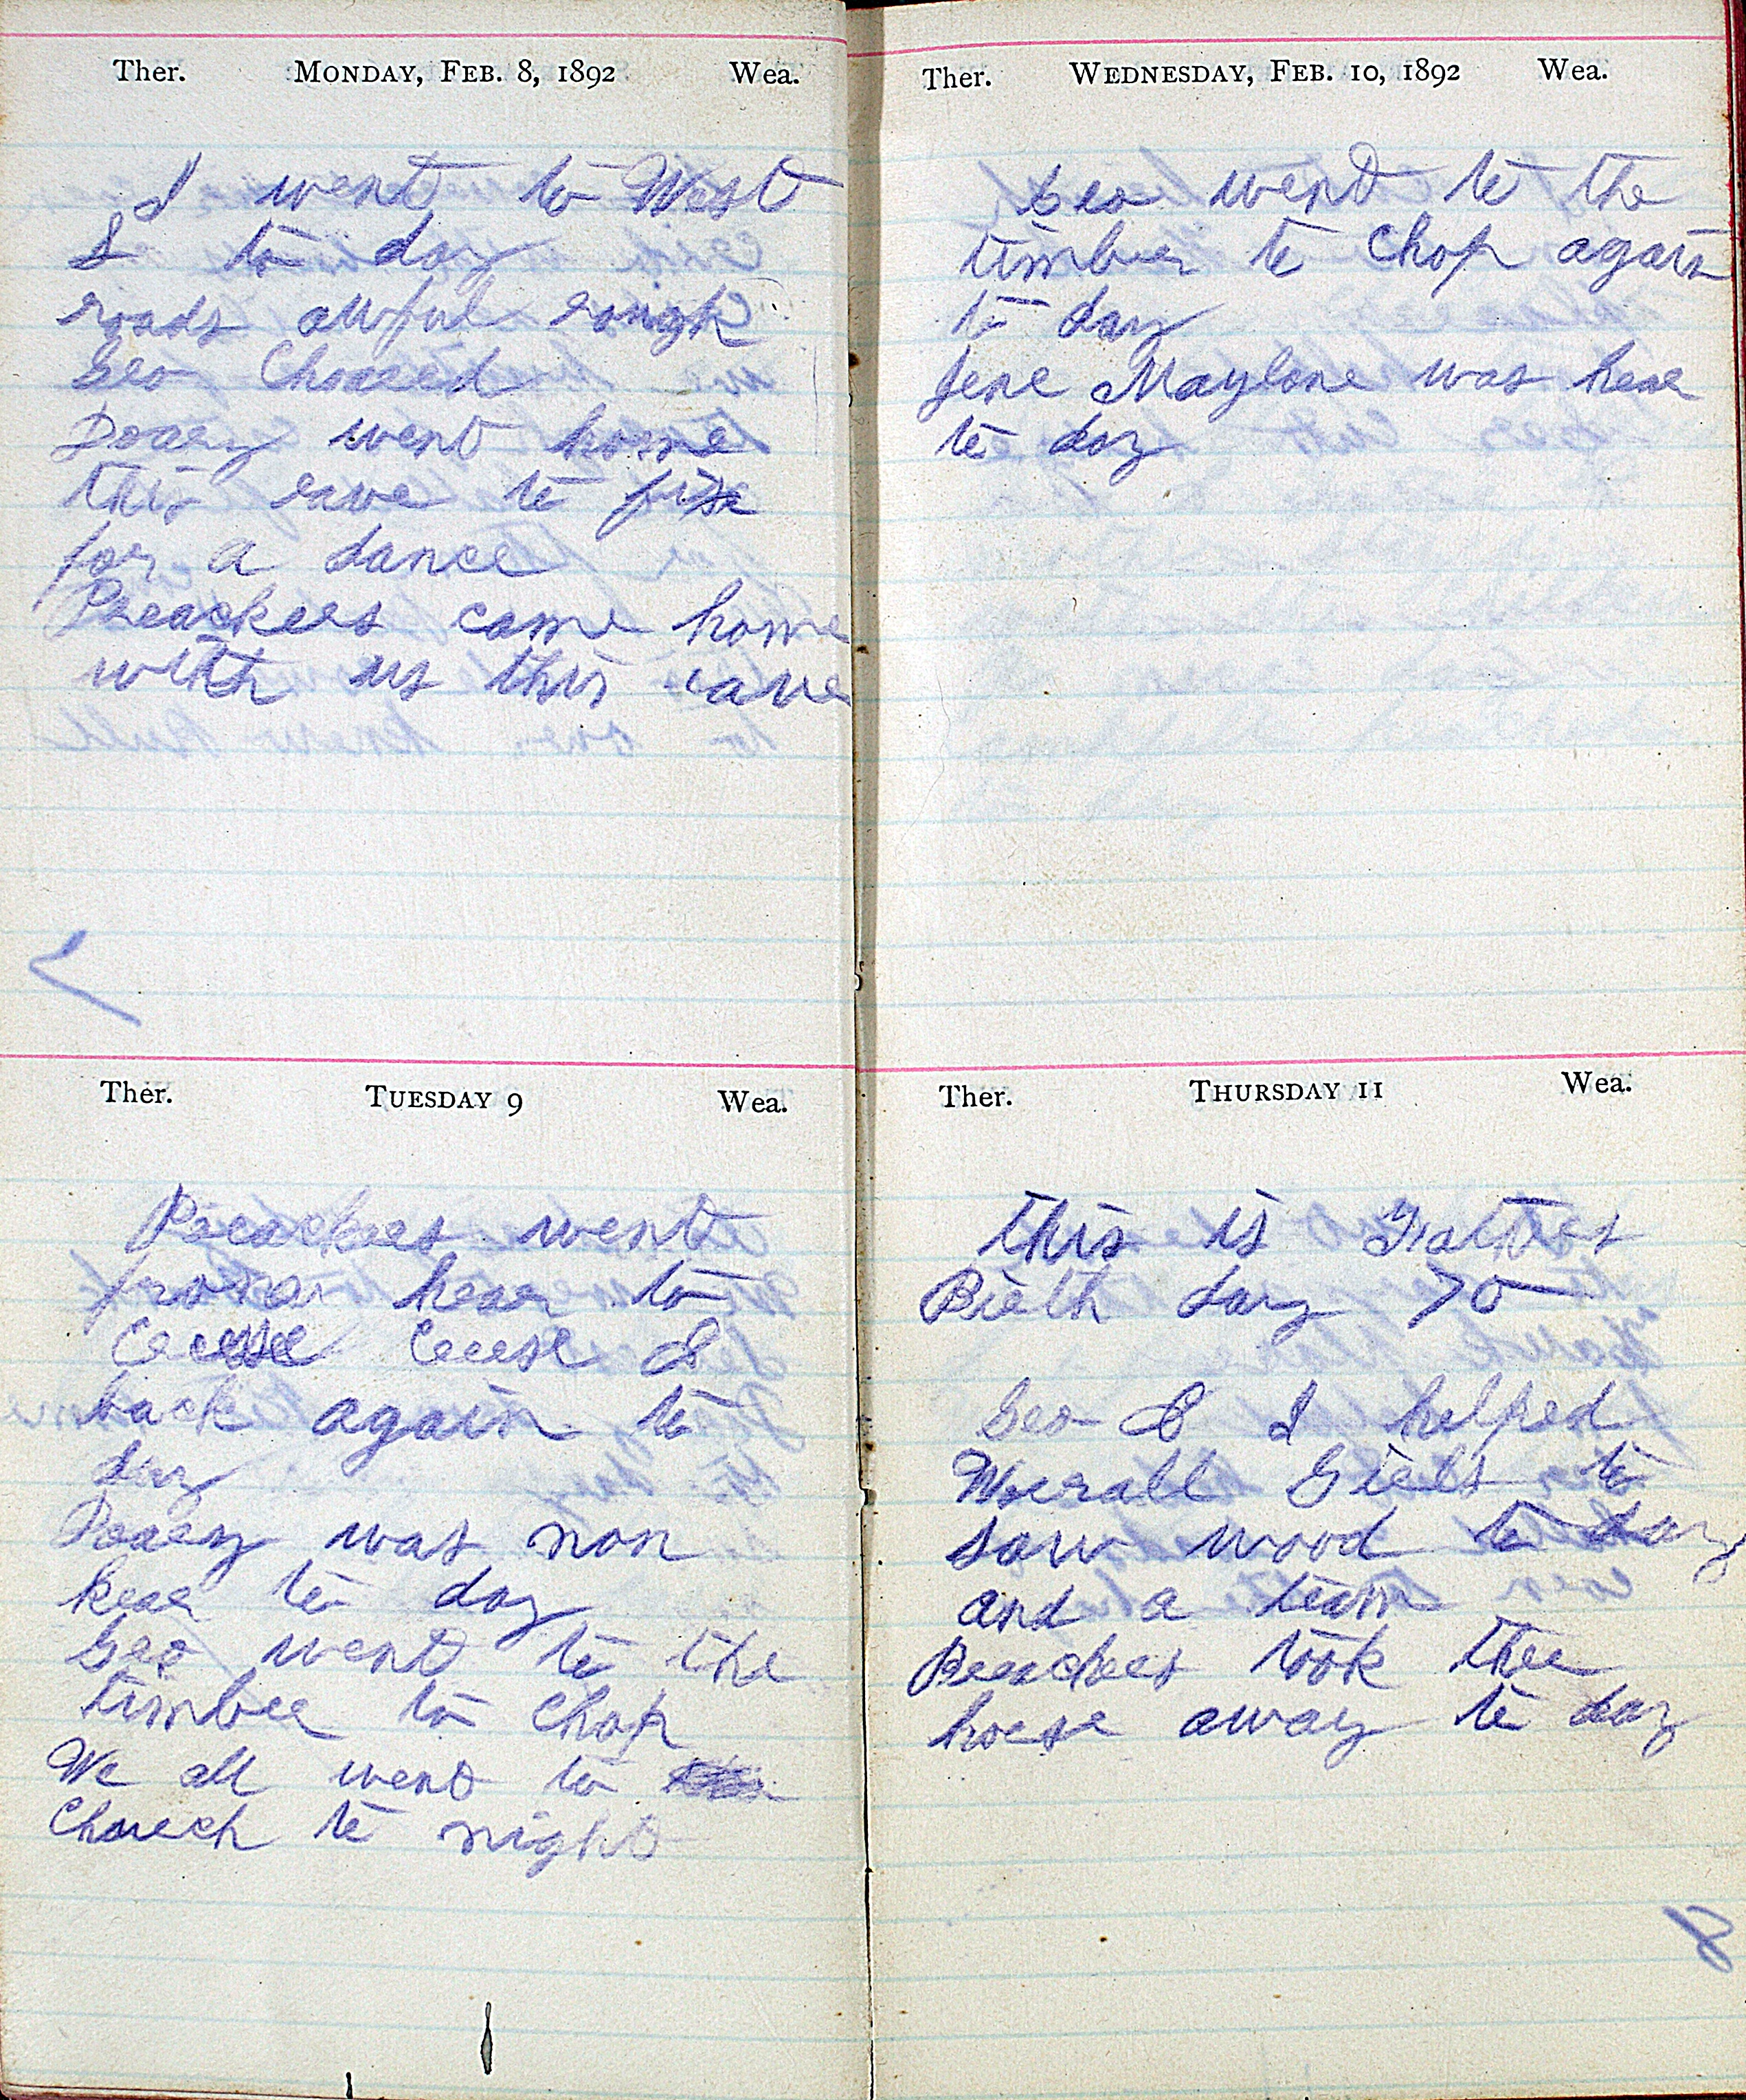 Ther. MONDAY, FEB. 8, 1892 Wea.
I went to West
L to day
roads awful rough
Geo Chored
Doaey went home
this eave to fix
for a dance
Preachers came home
with us this eave
Ther. TUESDAY 9 Wea.
Preachers went
from hear to
back again to
day
Doaey was non
hear to day
Geo went to the
timber to Chop
We all went to
Church to night
Ther. WEDNESDAY, FEB. 10, 1892 Wea.
Geo went to the
timber to Chop again
to day
Jene Maylone was hear
to day
Ther. THURSDAY 11 Wea.
this is
Birth day 70
Geo & I helped
Worrall Girls to
saw wood to day
and a team
Preachers took thee
horse away to day
8